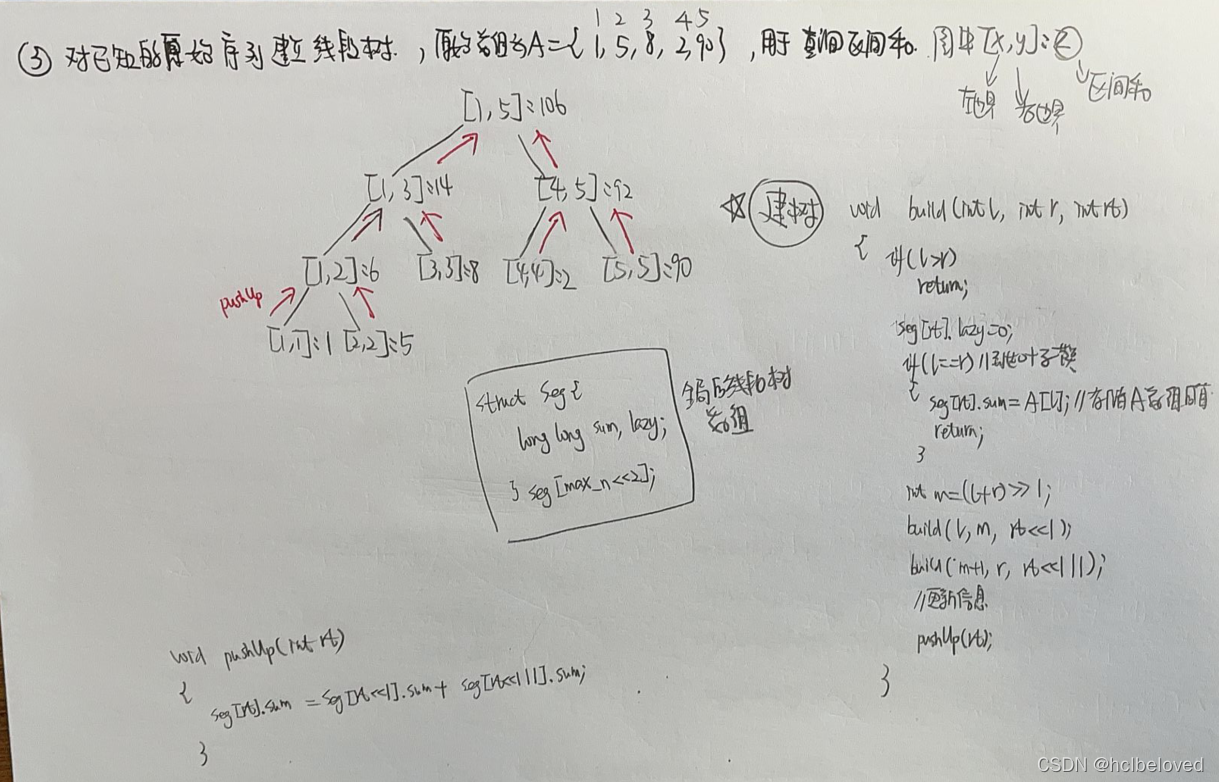 ③ 对已知的原始序列建立线段树，原始数组为A={1,5,8,2,90}，用于查询区间和. 图中[x,y]:z
1 2 3 4 5
左边界 右边界 区间和
[1,5]:106
[1,3]:14 [4,5]:92
[1,2]:6 [3,3]:8 [4,4]:2 [5,5]:90
pushUp
[1,1]:1 [2,2]:5
struct Seg{
long long sum, lazy;
} seg[max_n<<2];
全局的线段树
数组
☆ 建树 void build(int l, int r, int rt)
{
if(l>r)
return;
seg[rt].lazy=0;
if(l==r) //到达叶子节点
{
seg[rt].sum=A[l]; //存储A数组的值
return;
}
int m=(l+r)>>1;
build(l, m, rt<<1);
build(m+1, r, rt<<1|1);
//更新信息
pushUp(rt);
}
void pushUp(int rt)
{
seg[rt].sum = seg[rt<<1].sum + seg[rt<<1|1].sum;
}
CSDN @hclbeloved